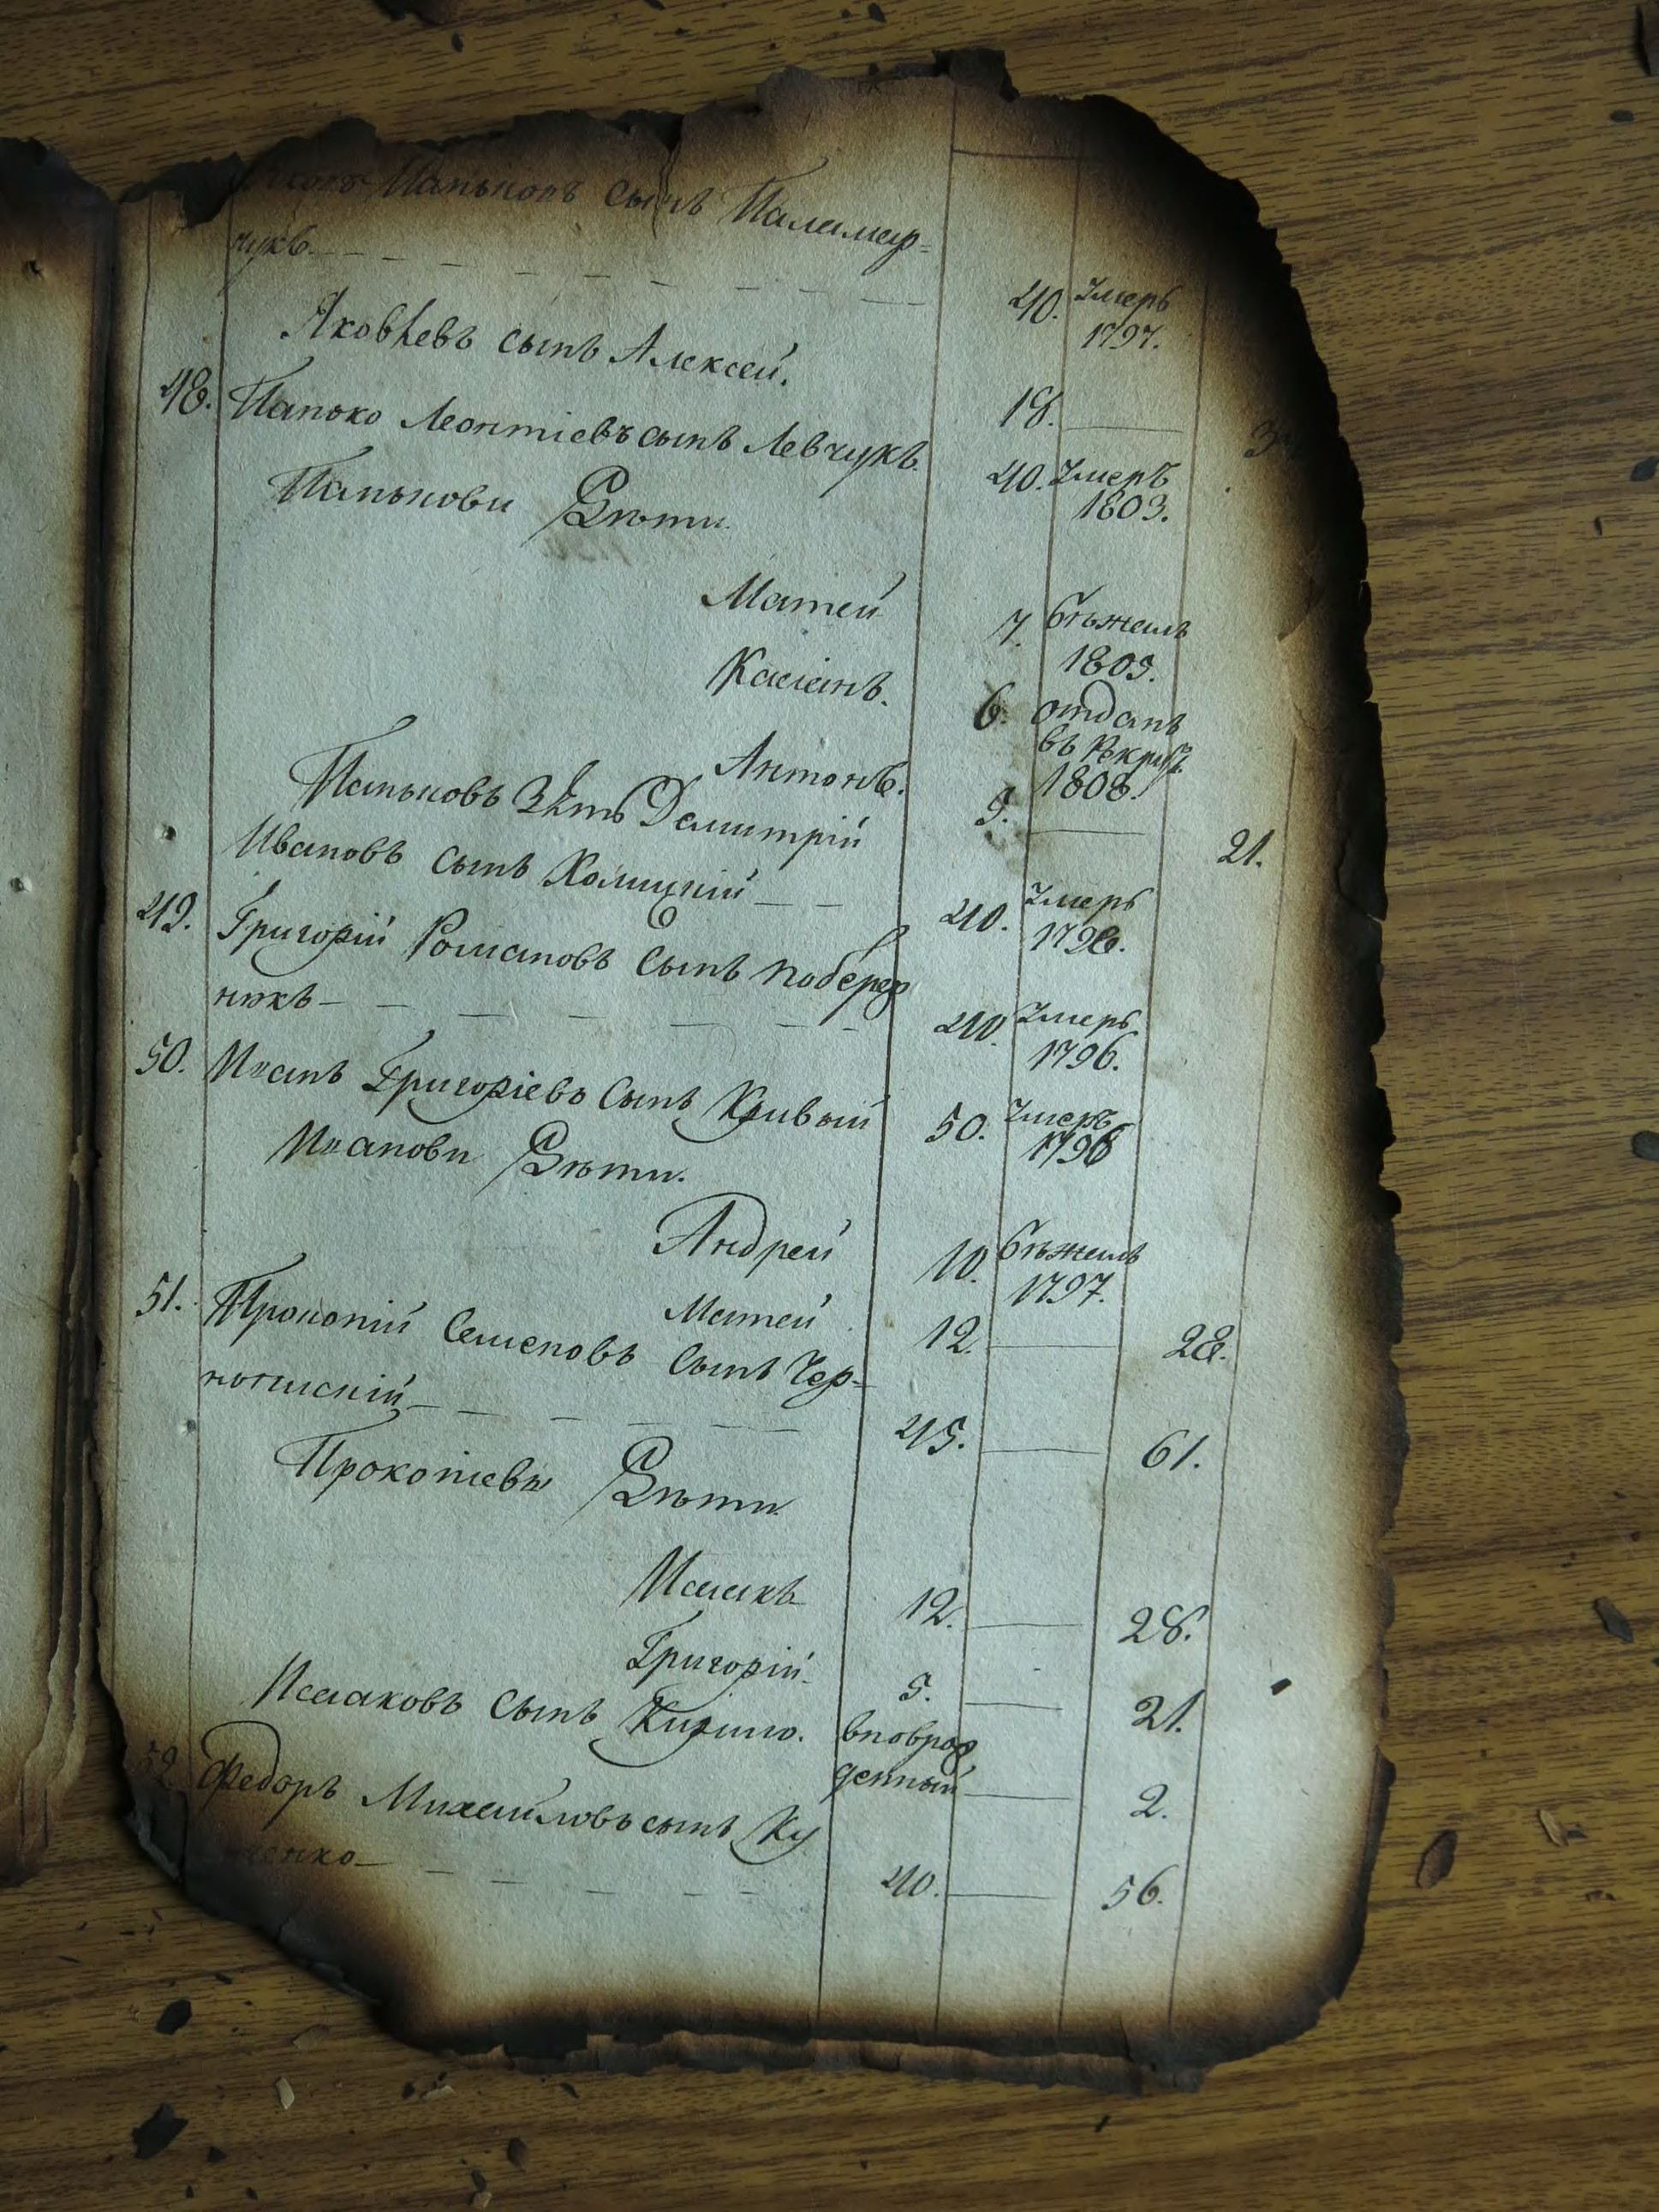 Паньковъ сынъ Паламар=
чукъ 40. Умеръ
1797.
Яковлевъ сынъ Алексей. 18.
48. Панько Леонтіевъ сынъ Левчукъ. 40. Умеръ
1803.
Панькови Дѣти
Матей 7. бѣжалъ
1805.
Касіянъ. 6. отданъ
въ Рекрут.
1808.
Антонъ. 5. 21.
Паньковъ Зять Дамитрій
Ивановъ сынъ Холицкій 40. Умеръ
1796.
49. Григорій Романовъ Сынъ побереж
никъ 40. Умеръ
1796.
50. Иванъ Григоріевъ Сынъ Кривый 50. Умеръ
1796
Иванови Дѣти.
Андрей 10. бѣжалъ
1797.
Матей 12. 28.
51. Прокопій Семеновъ Сынъ Чер-
ногискій 45. 61.
Прокопіевы Дѣти
Исаакъ 12. 28.
Григорій 5. 21.
Исааковъ Сынъ Кирило. вноврож
денный 2.
52 Федоръ Михайловъ сынъ Ку
ченко 40. 56.